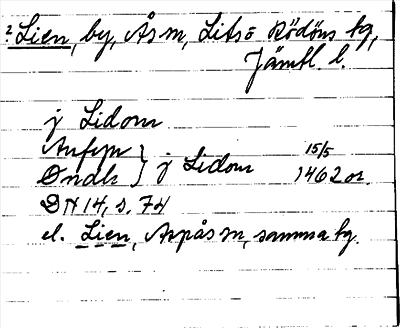 ? Lien, by, Ås sn, Litsö Rödöns tg,
Jämtl. l.
j Lidom
Anfyn } j Lidom 15/5
Øndh 1462 or.
DN 14, s. 74
el. Lien, Aspås sn, samma tg.